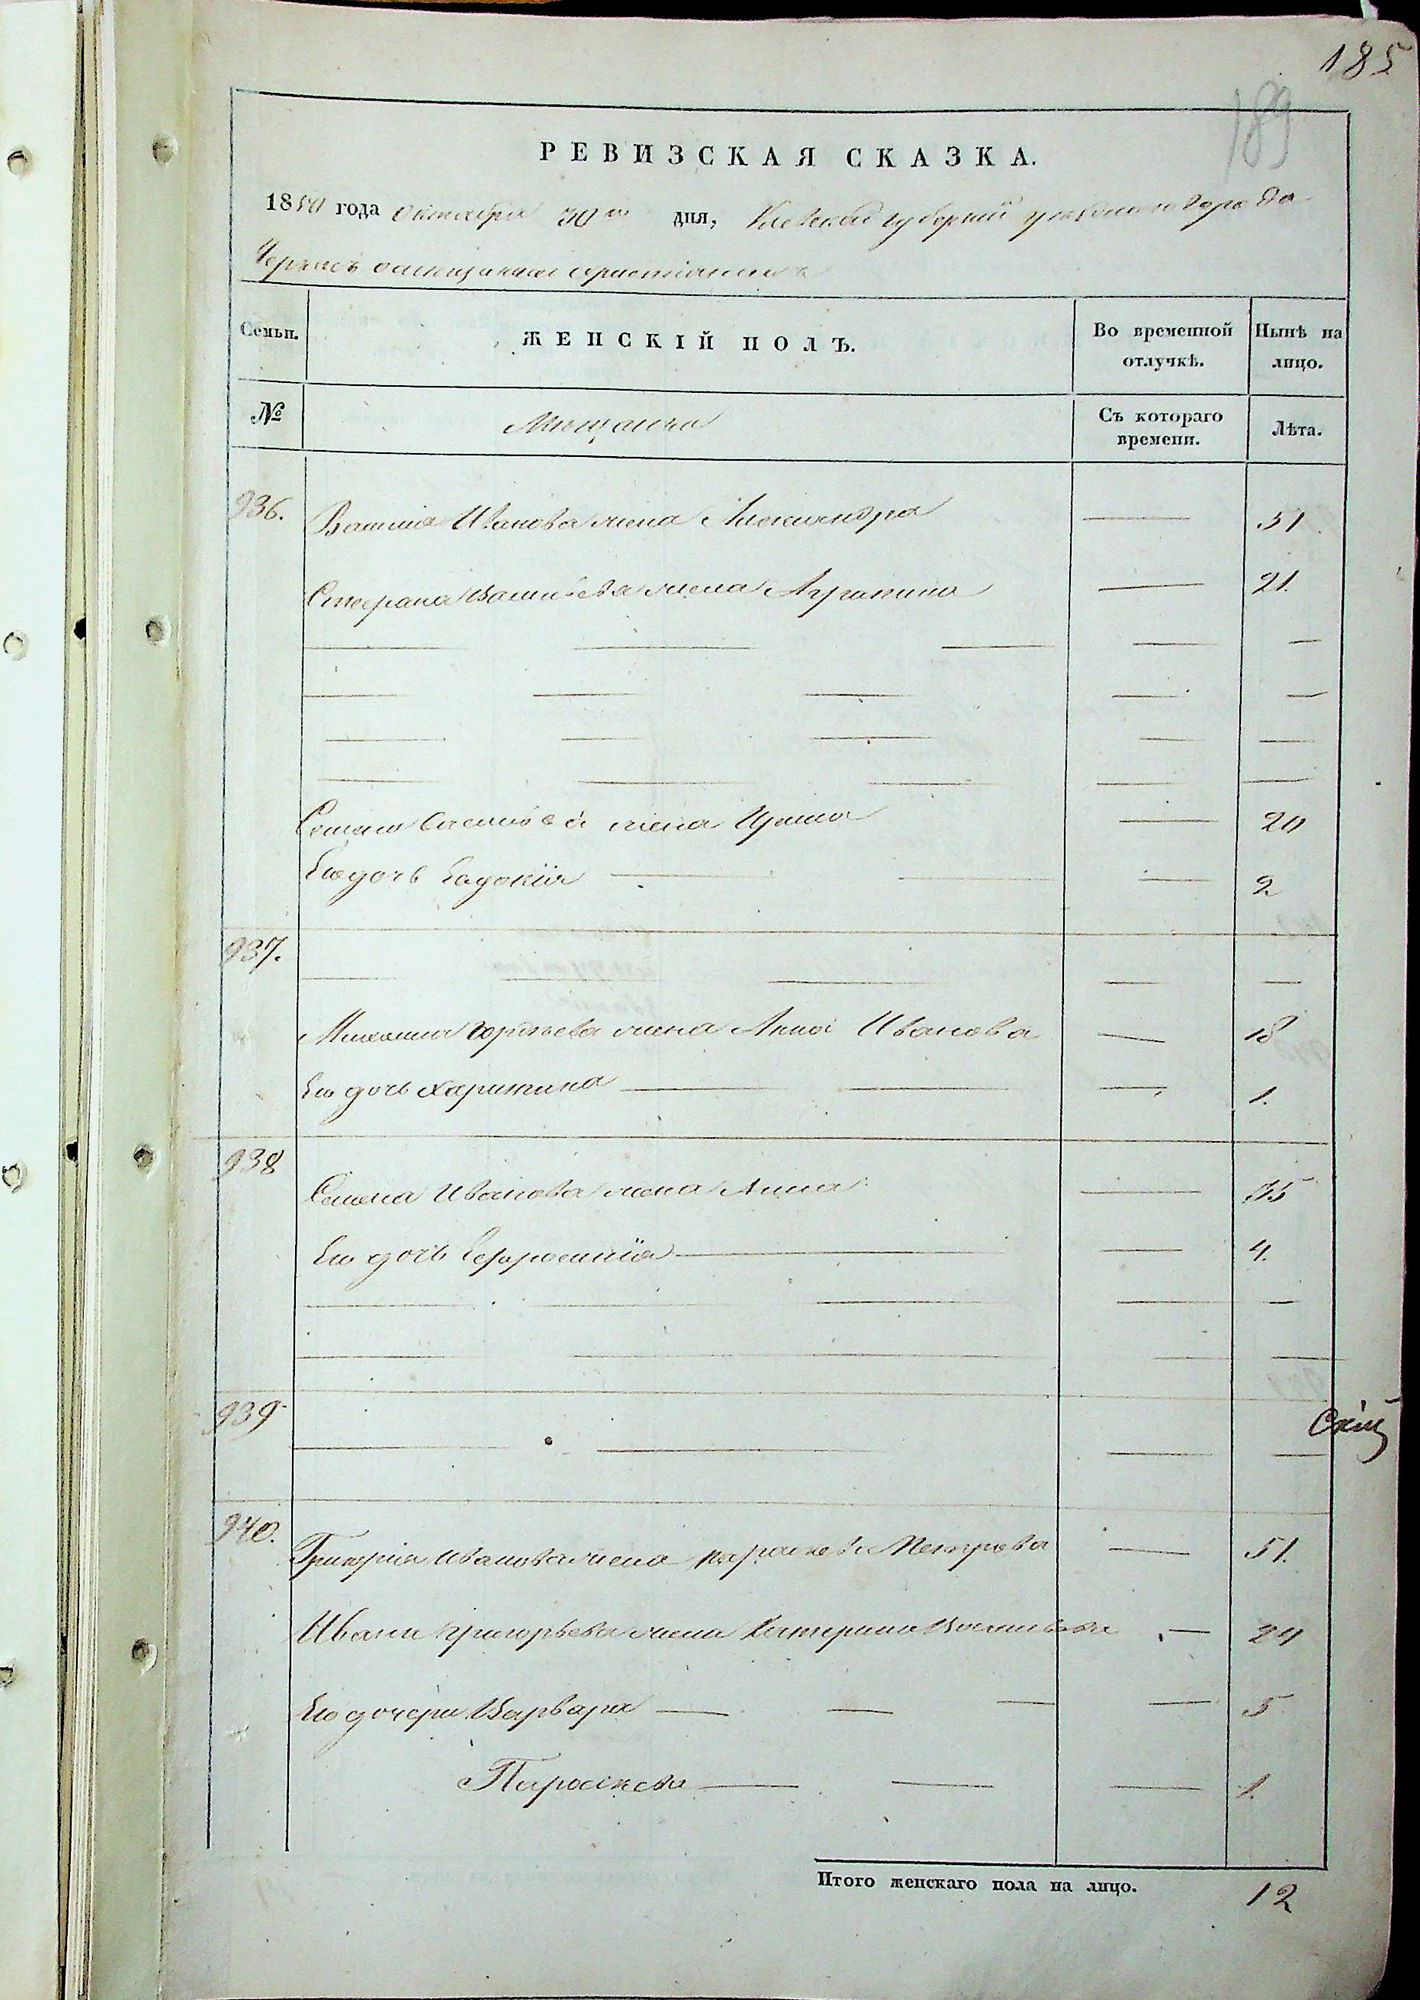 185
189
РЕВИЗСКАЯ СКАЗКА.
1850 года Октября 30го дня, Киевской губернии уезднаго города
Черкас о мещанах христианах
Семьи. ЖЕНСКІЙ ПОЛЪ. Во временной отлучкѣ. Нынѣ на лицо.
№ Мещане Съ котораго времени. Лѣта.
936. Василия Иванова жена Александра — 51
Стефана Васильева жена Агрипина — 21.
— — — — —
— — — — —
— — — — —
— — — — —
жена Ирина — 20
Его дочь Евдокія — — — 2
937. — — — — —
Михаила жена Анна Иванова — 18
Его дочь Харитина — — — 1.
938 Семена Иванова жена Анна — 35
Его дочь Ефросинія — — 4.
— — — — —
— — — — —
939 — — — —
940. Григория Иванова жена Параскева Петрова — 51.
Ивана Григорьева жена Катерина Васильева — 24
Его дочери Варвара — — — — 5
Параскева — — — 1.
Итого женскаго пола на лицо. 12